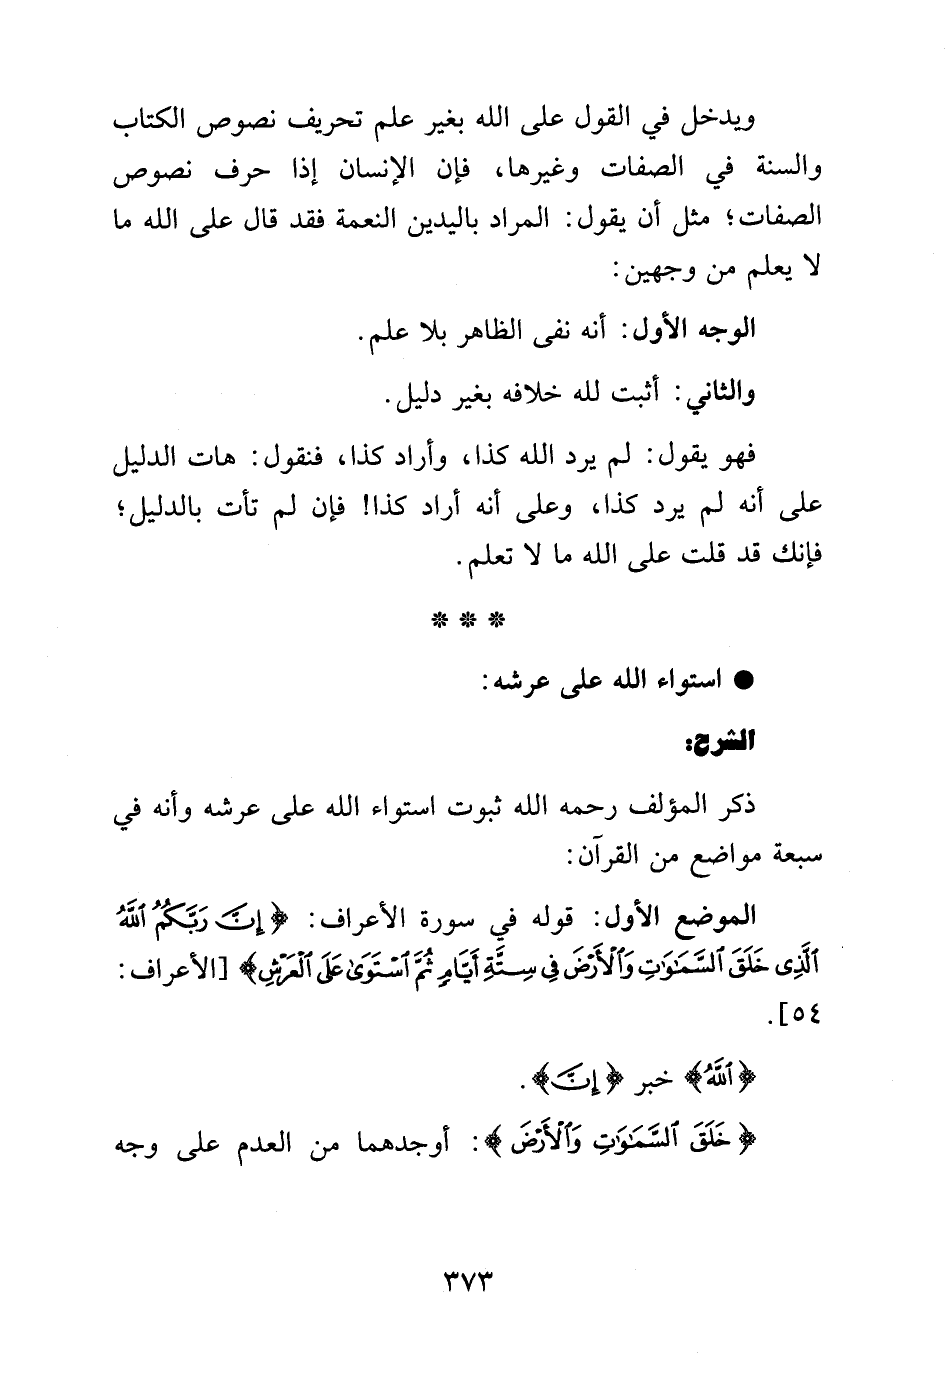 ويدخل في القول على الله بغير علم تحريف نصوص الكتاب
والسنة في الصفات وغيرها، فإن الإنسان إذا حرف نصوص
الصفات؛ مثل أن يقول: المراد باليدين النعمة فقد قال على الله ما
لا يعلم من وجهين:
الوجه الأول: أنه نفى الظاهر بلا علم.
والثاني: أثبت لله خلافه بغير دليل.
فهو يقول: لم يرد الله كذا، وأراد كذا، فنقول: هات الدليل
على أنه لم يرد كذا، وعلى أنه أراد كذا! فإن لم تأت بالدليل؛
فإنك قد قلت على الله ما لا تعلم.
* * *
● استواء الله على عرشه:
الشرح:
ذكر المؤلف رحمه الله ثبوت استواء الله على عرشه وأنه في
سبعة مواضع من القرآن:
الموضع الأول: قوله في سورة الأعراف: ﴿إِنَّ رَبَّكُمُ ٱللَّهُ
ٱلَّذِى خَلَقَ ٱلسَّمَٰوَٰتِ وَٱلْأَرْضَ فِى سِتَّةِ أَيَّامٍ ثُمَّ ٱسْتَوَىٰ عَلَى ٱلْعَرْشِ﴾ [الأعراف:
٥٤].
﴿ٱللَّهُ﴾ خبر ﴿إِنَّ﴾.
﴿خَلَقَ ٱلسَّمَٰوَٰتِ وَٱلْأَرْضَ﴾: أوجدهما من العدم على وجه
٣٧٣